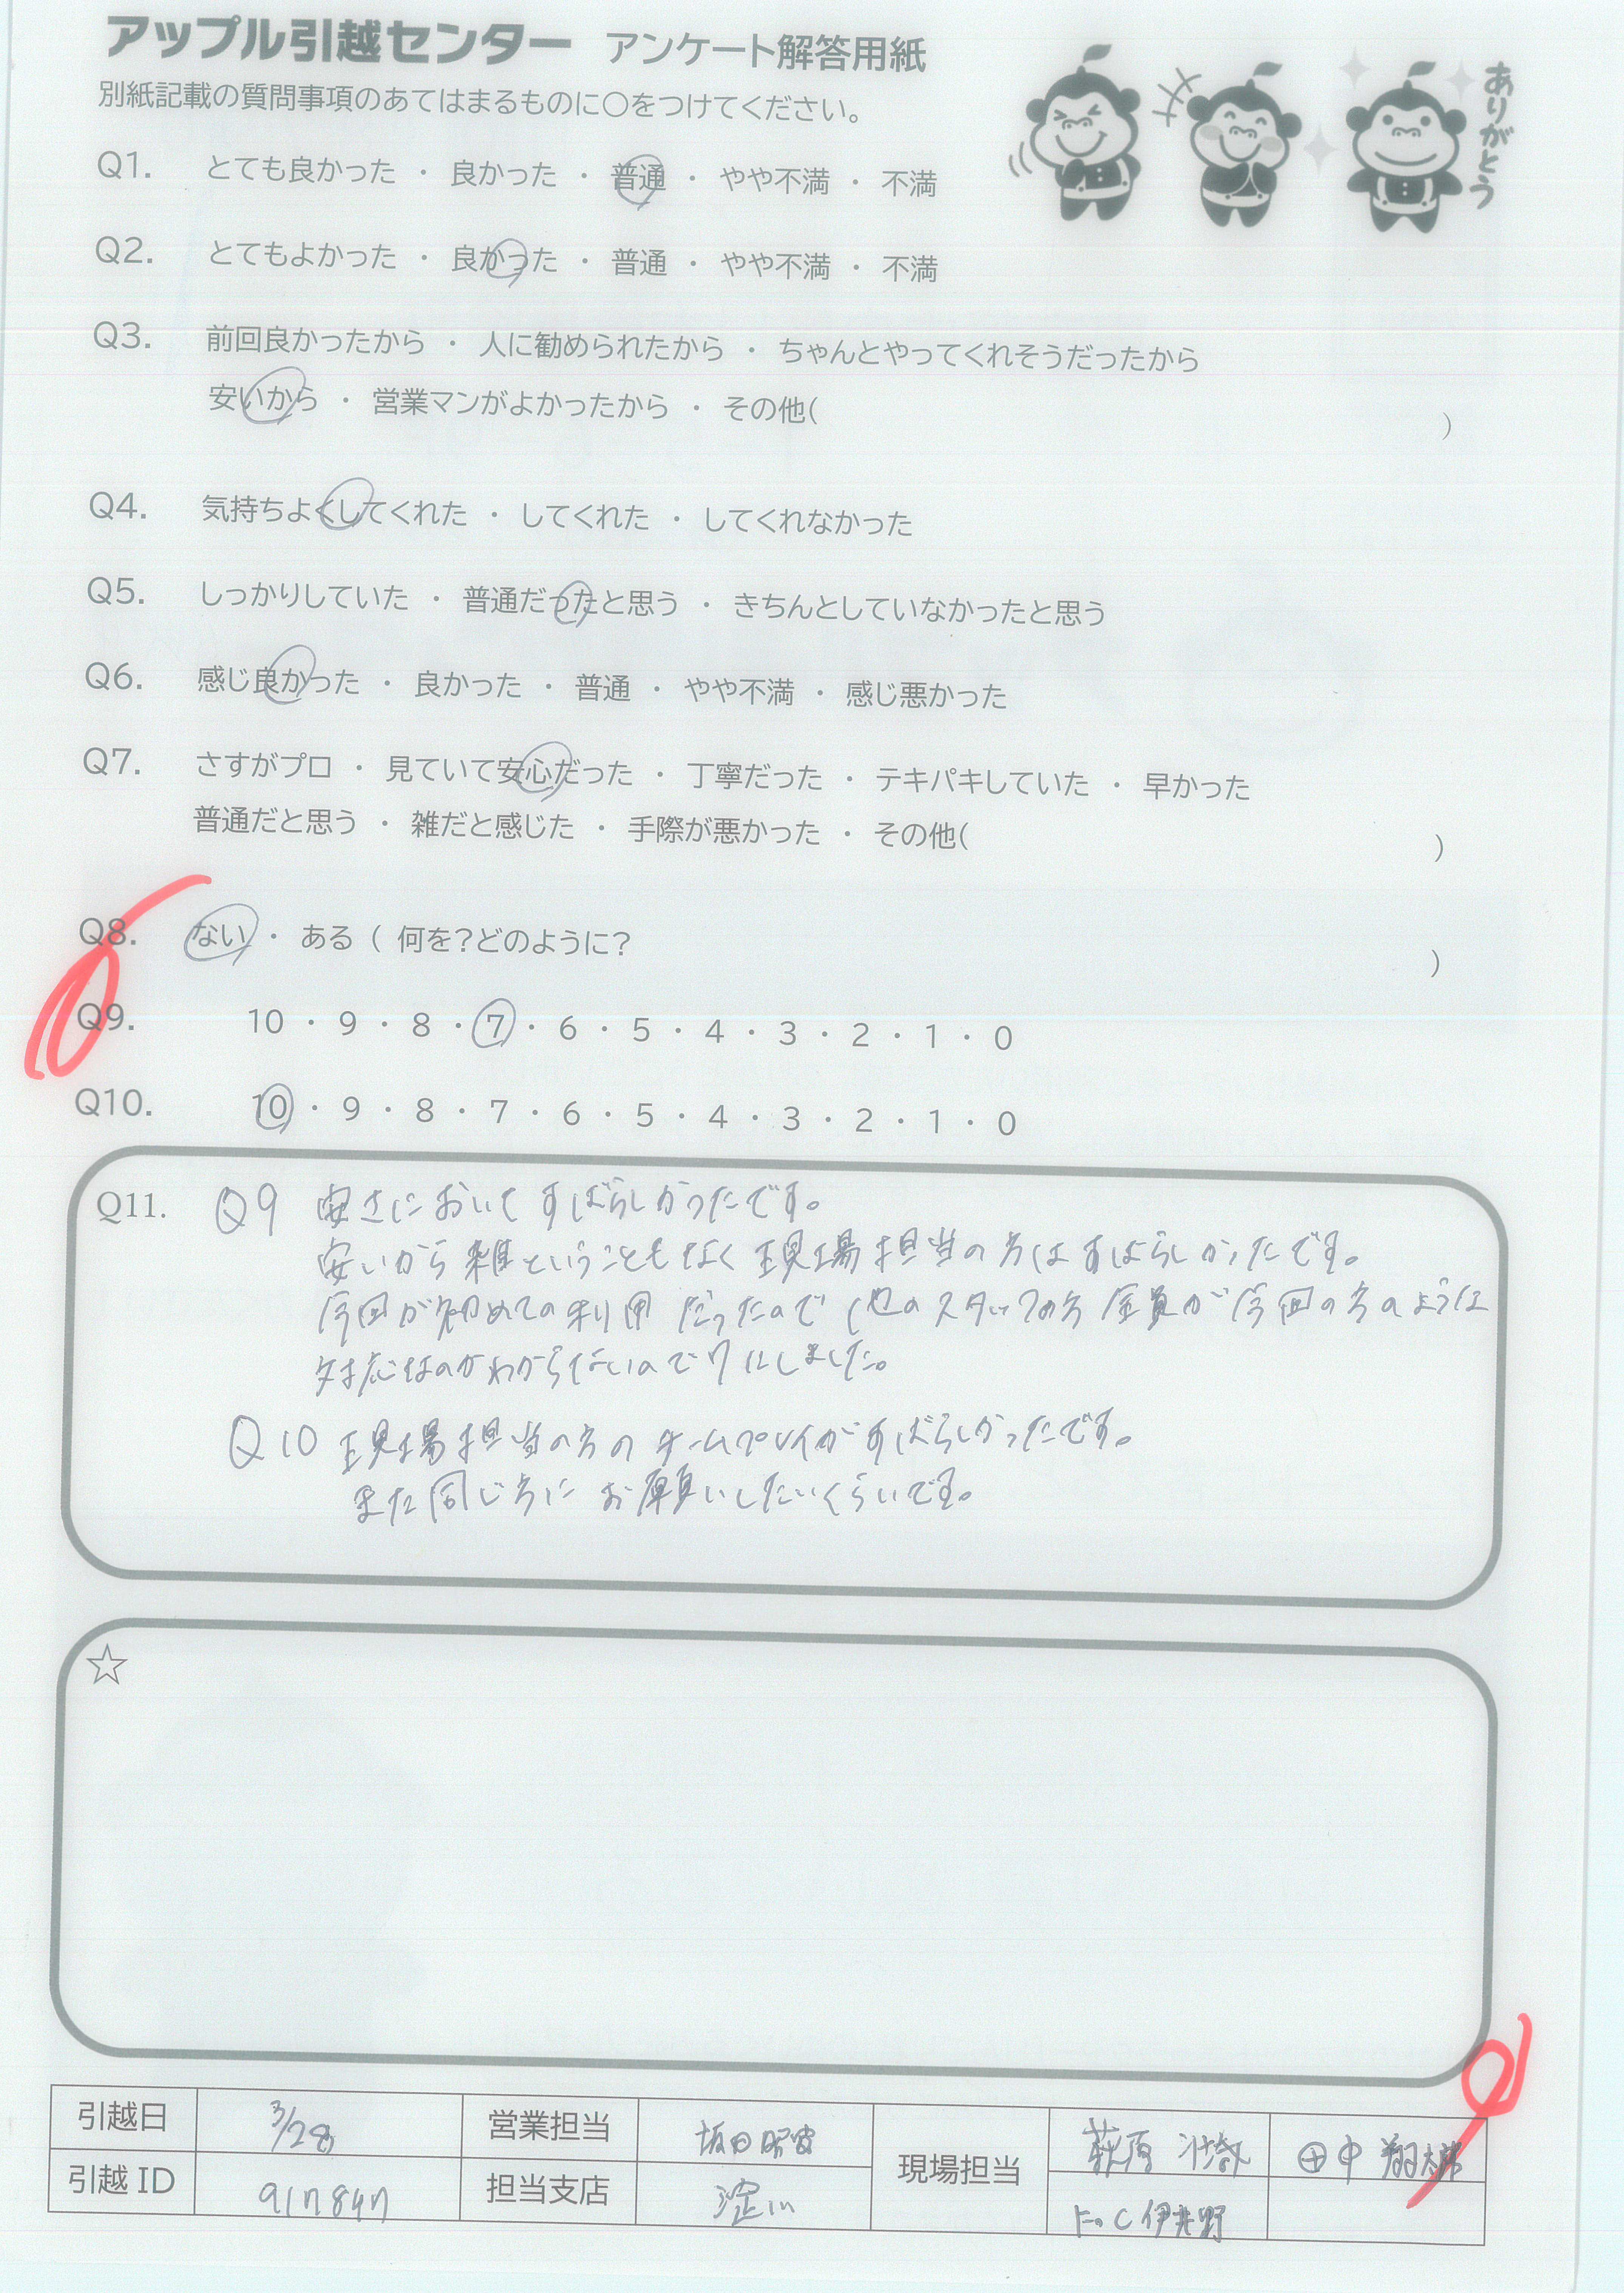 アップル引越センター アンケート解答用紙
別紙記載の質問事項のあてはまるものに○をつけてください。
ありがとう
Q1. とても良かった ・ 良かった ・ 普通 ・ やや不満 ・ 不満
Q2. とてもよかった ・ 良かった ・ 普通 ・ やや不満 ・ 不満
Q3. 前回良かったから ・ 人に勧められたから ・ ちゃんとやってくれそうだったから
安いから ・ 営業マンがよかったから ・ その他( )
Q4. 気持ちよくしてくれた ・ してくれた ・ してくれなかった
Q5. しっかりしていた ・ 普通だったと思う ・ きちんとしていなかったと思う
Q6. 感じ良かった ・ 良かった ・ 普通 ・ やや不満 ・ 感じ悪かった
Q7. さすがプロ ・ 見ていて安心だった ・ 丁寧だった ・ テキパキしていた ・ 早かった
普通だと思う ・ 雑だと感じた ・ 手際が悪かった ・ その他( )
Q8. ない ・ ある ( 何を?どのように? )
Q9. 10 ・ 9 ・ 8 ・ 7 ・ 6 ・ 5 ・ 4 ・ 3 ・ 2 ・ 1 ・ 0
Q10. 10 ・ 9 ・ 8 ・ 7 ・ 6 ・ 5 ・ 4 ・ 3 ・ 2 ・ 1 ・ 0
Q11. Q9 安さにおいてすばらしかったです。
安いから雑ということもなく現場担当の方はすばらしかったです。
今回が初めての利用だったので他のスタッフの方全員が今回の方のような
対応なのかわからないので7にしました。
Q10 現場担当の方のチームプレイがすばらしかったです。
また同じ方にお願いしたいくらいです。
☆
引越日 3/28 営業担当 坂田 現場担当 萩原 田中 翔太郎
引越ID 917847 担当支店 淀川 伊井野